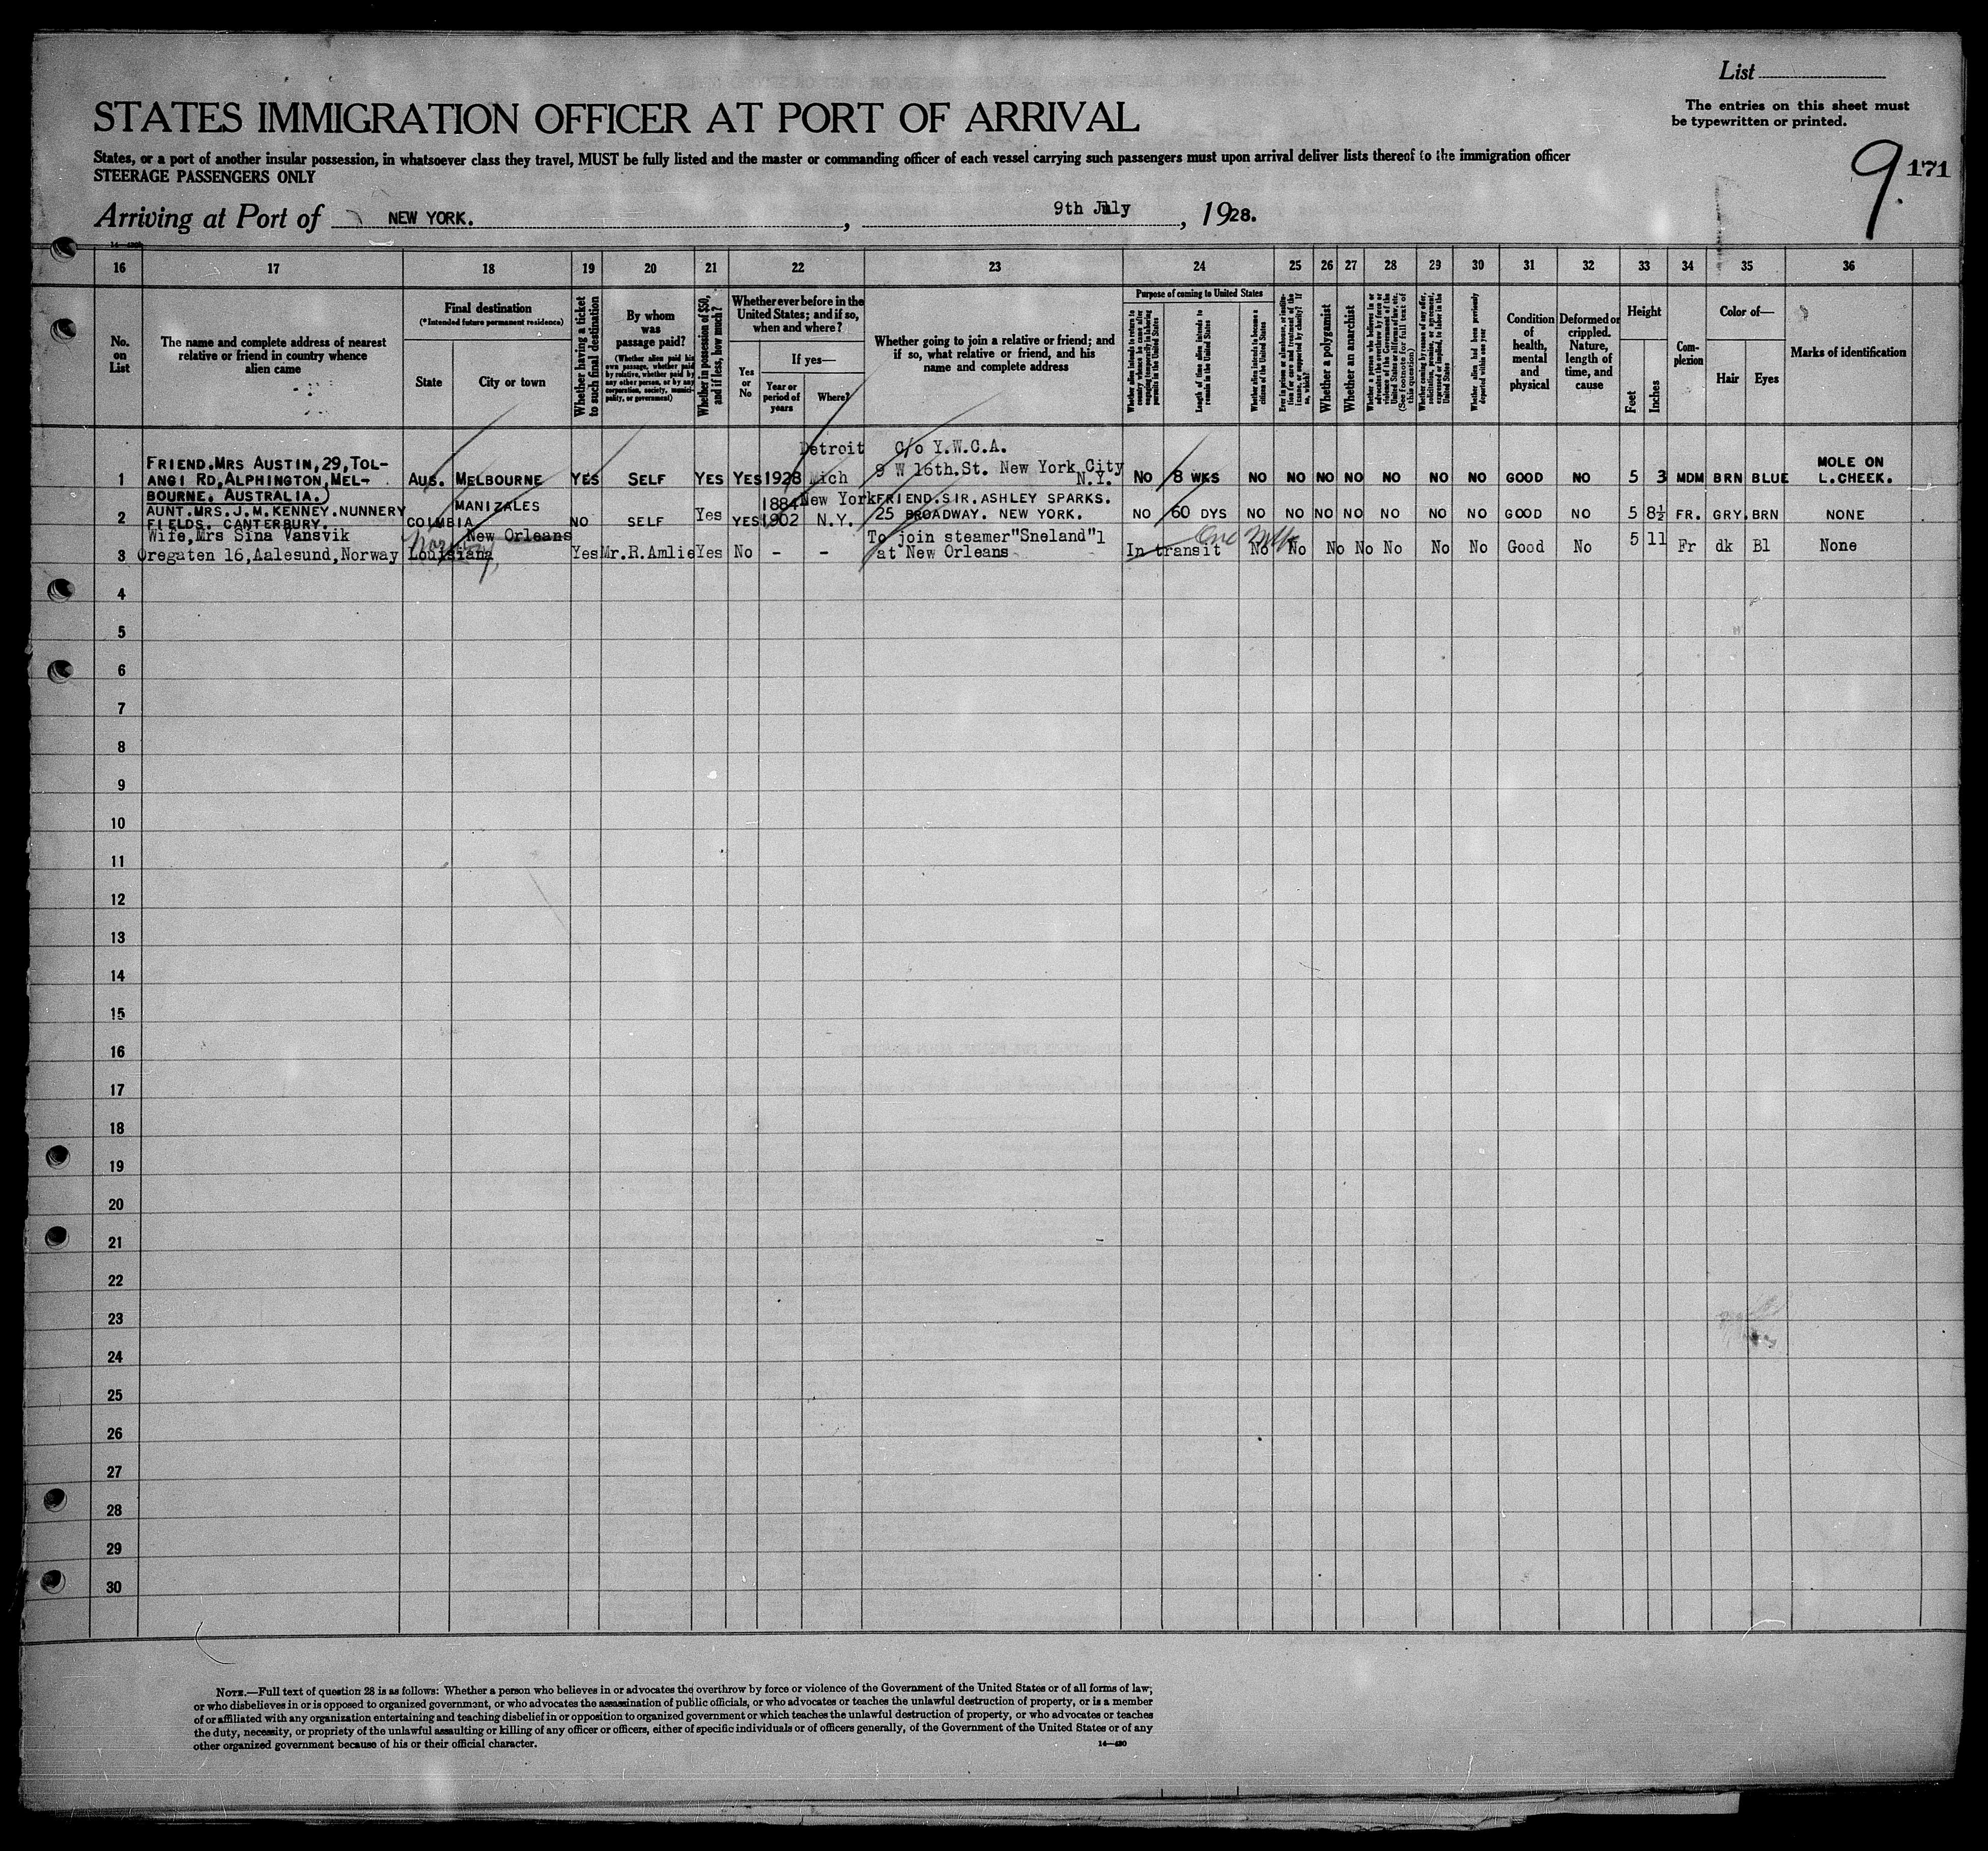 List
STATES IMMIGRATION OFFICER AT PORT OF ARRIVAL
The entries on this sheet must
be typewritten or printed.
States, or a port of another insular possession, in whatsoever class they travel, MUST be fully listed and the master or commanding officer of each vessel carrying such passengers must upon arrival deliver lists thereof to the immigration officer
STEERAGE PASSENGERS ONLY
9. 171
Arriving at Port of NEW YORK. , 9th July , 1928.
16 17 18 19 20 21 22 23 24 25 26 27 28 29 30 31 32 33 34 35 36
No.
on
List
The name and complete address of nearest
relative or friend in country whence
alien came
Final destination
(*Intended future permanent residence)
State City or town
Whether having a ticket
to such final destination
By whom
was
passage paid?
(Whether alien paid his
own passage, whether paid
by relative, whether paid by
any other person, or by any
corporation, society, munici-
pality, or government)
Whether in possession of $50,
and if less, how much?
Whether ever before in the
United States; and if so,
when and where?
Yes
or
No
If yes—
Year or
period of
years
Where?
Whether going to join a relative or friend; and
if so, what relative or friend, and his
name and complete address
Purpose of coming to United States
Whether alien intends to return to
country whence he came after
engaging temporarily in laboring
pursuits in the United States
Length of time alien intends to
remain in the United States
Whether alien intends to become a
citizen of the United States
Ever in prison or almshouse, or institu-
tion for care and treatment of the
insane, or supported by charity? If
so, which?
Whether a polygamist
Whether an anarchist
Whether a person who believes in or
advocates the overthrow by force or
violence of the Government of the
United States or all forms of law, etc.
(See footnote for full text of
this question)
Whether coming by reason of any offer,
solicitation, promise, or agreement,
expressed or implied, to labor in the
United States
Whether alien had been previously
deported within one year
Condition
of
health,
mental
and
physical
Deformed or
crippled.
Nature,
length of
time, and
cause
Height
Feet Inches
Com-
plexion
Color of—
Hair Eyes
Marks of identification
1 FRIEND.MRS AUSTIN,29,TOL-
ANGI RD,ALPHINGTON,MEL-
BOURNE. AUSTRALIA.)
AUS. MELBOURNE YES SELF YES YES 1928 Detroit
Mich
C/o Y.W.C.A.
9 W 16th.St. New York City
N.Y.
NO 8 WKS NO NO NO NO NO NO NO GOOD NO 5 3 MDM BRN BLUE MOLE ON
L.CHEEK.
2 AUNT.MRS.J.M.KENNEY.NUNNERY
FIELDS. CANTERBURY.
COLMBIA MANIZALES NO SELF Yes YES 1884
1902
New York
N.Y.
FRIEND.SIR.ASHLEY SPARKS.
25 BROADWAY. NEW YORK.
NO 60 DYS NO NO NO NO NO NO NO GOOD NO 5 8½ FR. GRY. BRN NONE
3 Wife,Mrs Sina Vansvik
Oregaten 16,Aalesund,Norway
Louisiana New Orleans
Norway,
Yes Mr.R.Amlie Yes No - -
To join steamer"Sneland"1
at New Orleans
In transit One No No No No No No No Good No 5 11 Fr dk Bl None
4
5
6
7
8
9
10
11
12
13
14
15
16
17
18
19
20
21
22
23
24
25
26
27
28
29
30
NOTE.—Full text of question 28 is as follows: Whether a person who believes in or advocates the overthrow by force or violence of the Government of the United States or of all forms of law,
or who disbelieves in or is opposed to organized government, or who advocates the assassination of public officials, or who advocates or teaches the unlawful destruction of property, or is a member
of or affiliated with any organization entertaining and teaching disbelief in or opposition to organized government or which teaches the unlawful destruction of property, or who advocates or teaches
the duty, necessity, or propriety of the unlawful assaulting or killing of any officer or officers, either of specific individuals or of officers generally, of the Government of the United States or of any
other organized government because of his or their official character.
14—430